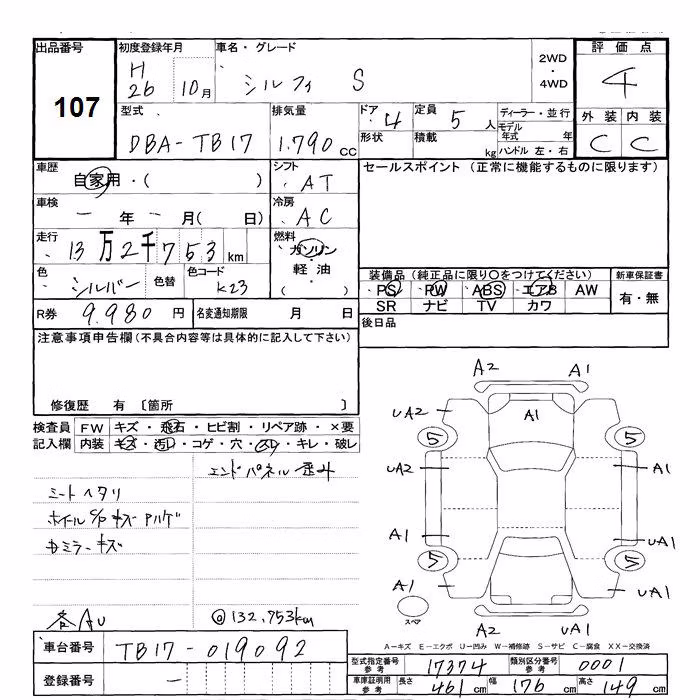 出品番号 初度登録年月 車名・グレード 2WD・4WD 評価点
107 H26 10月 シルフィ S 4
型式 排気量 ドア 4 定員 5人 ディーラー・並行 外装 内装
DBA-TB17 1.790 CC 形状 積載 kg モデル年式 年 ハンドル 左・右 C C
車歴 自家用・( ) シフト AT セールスポイント(正常に機能するものに限ります)
車検 - 年 - 月( 日) 冷房 AC
走行 13万2千753km 燃料 ガソリン・軽油・( )
色 シルバー 色替 色コード K23
装備品(純正品に限り○をつけてください) 新車保証書
PS PW ABS エアB AW 有・無
SR ナビ TV カワ
R券 9.980円 名変通知期限 月 日 後日品
注意事項申告欄(不具合内容等は具体的に記入して下さい)
修復歴 有 〔箇所 〕
検査員 FW キズ・飛石・ヒビ割・リペア跡・×要
記入欄 内装 キズ・汚レ・コゲ・穴・スレ・キレ・破レ
エンドパネル歪み
シートヘタリ
ホイールC/Pキズ ハルゲ
ドミラーキズ
各AU ◎132,753km
A2 A1
UA2 A1
5 5
UA2 A1
A1 UA1
5 5
A1 UA1
スペア
A2 UA1
A-キズ E-エクボ U-凹み W-補修跡 S-サビ C-腐食 XX-交換済
車台番号 TB17-019092
登録番号 -
型式指定番号 参考 17374 類別区分番号 参考 0001
車庫証明用 参考 長さ 461cm 幅 176cm 高さ 149cm